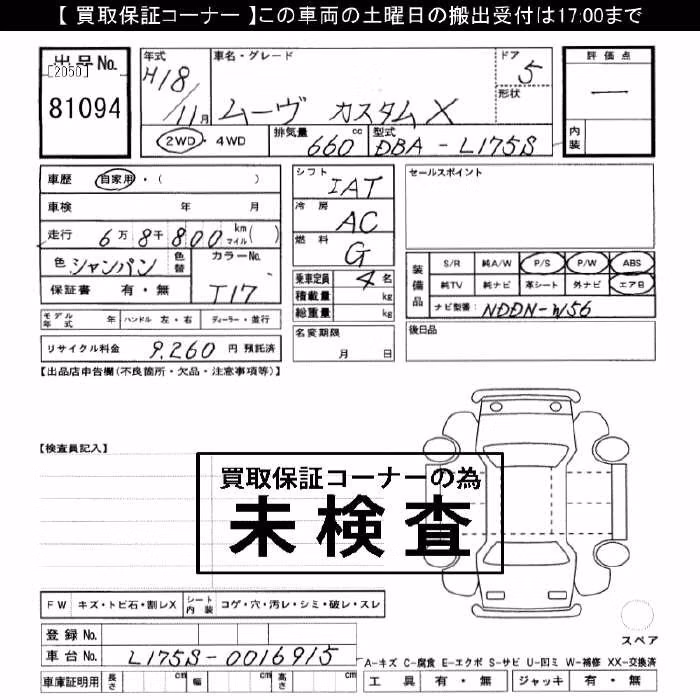 【 買取保証コーナー 】この車両の土曜日の搬出受付は17:00まで
出品No.
[2050]
81094
年式 H18/11月
車名・グレード ムーヴ カスタムX
ドア 5
形状
評価点 一
内装
2WD・4WD
排気量 660cc
型式 DBA-L175S
車歴 自家用・( )
車検 年 月
走行 6万8千800 km マイル( )
色 シャンパン 色替
カラーNo. T17
保証書 有・無
シフト IAT
冷房 AC
燃料 G
乗車定員 4名
積載量 kg
総重量 kg
セールスポイント
装備品
S/R 純A/W P/S P/W ABS
純TV 純ナビ 革シート 外ナビ エアB
ナビ型番: NDDN-W56
モデル年式 年 ハンドル 左・右 ディーラー・並行
リサイクル料金 9,260 円 預託済
名変期限 月 日
後日品
【出品店申告欄(不良箇所・欠品・注意事項等)】
【検査員記入】
買取保証コーナーの為
未検査
FW キズ・トビ石・割レX
シート内装 コゲ・穴・汚レ・シミ・破レ・スレ
登録No.
車台No. L175S-0016915
車庫証明用 長さ cm 幅 cm 高さ cm
スペア
A-キズ C-腐食 E-エクボ S-サビ U-凹ミ W-補修 XX-交換済
工具 有・無 ジャッキ 有・無